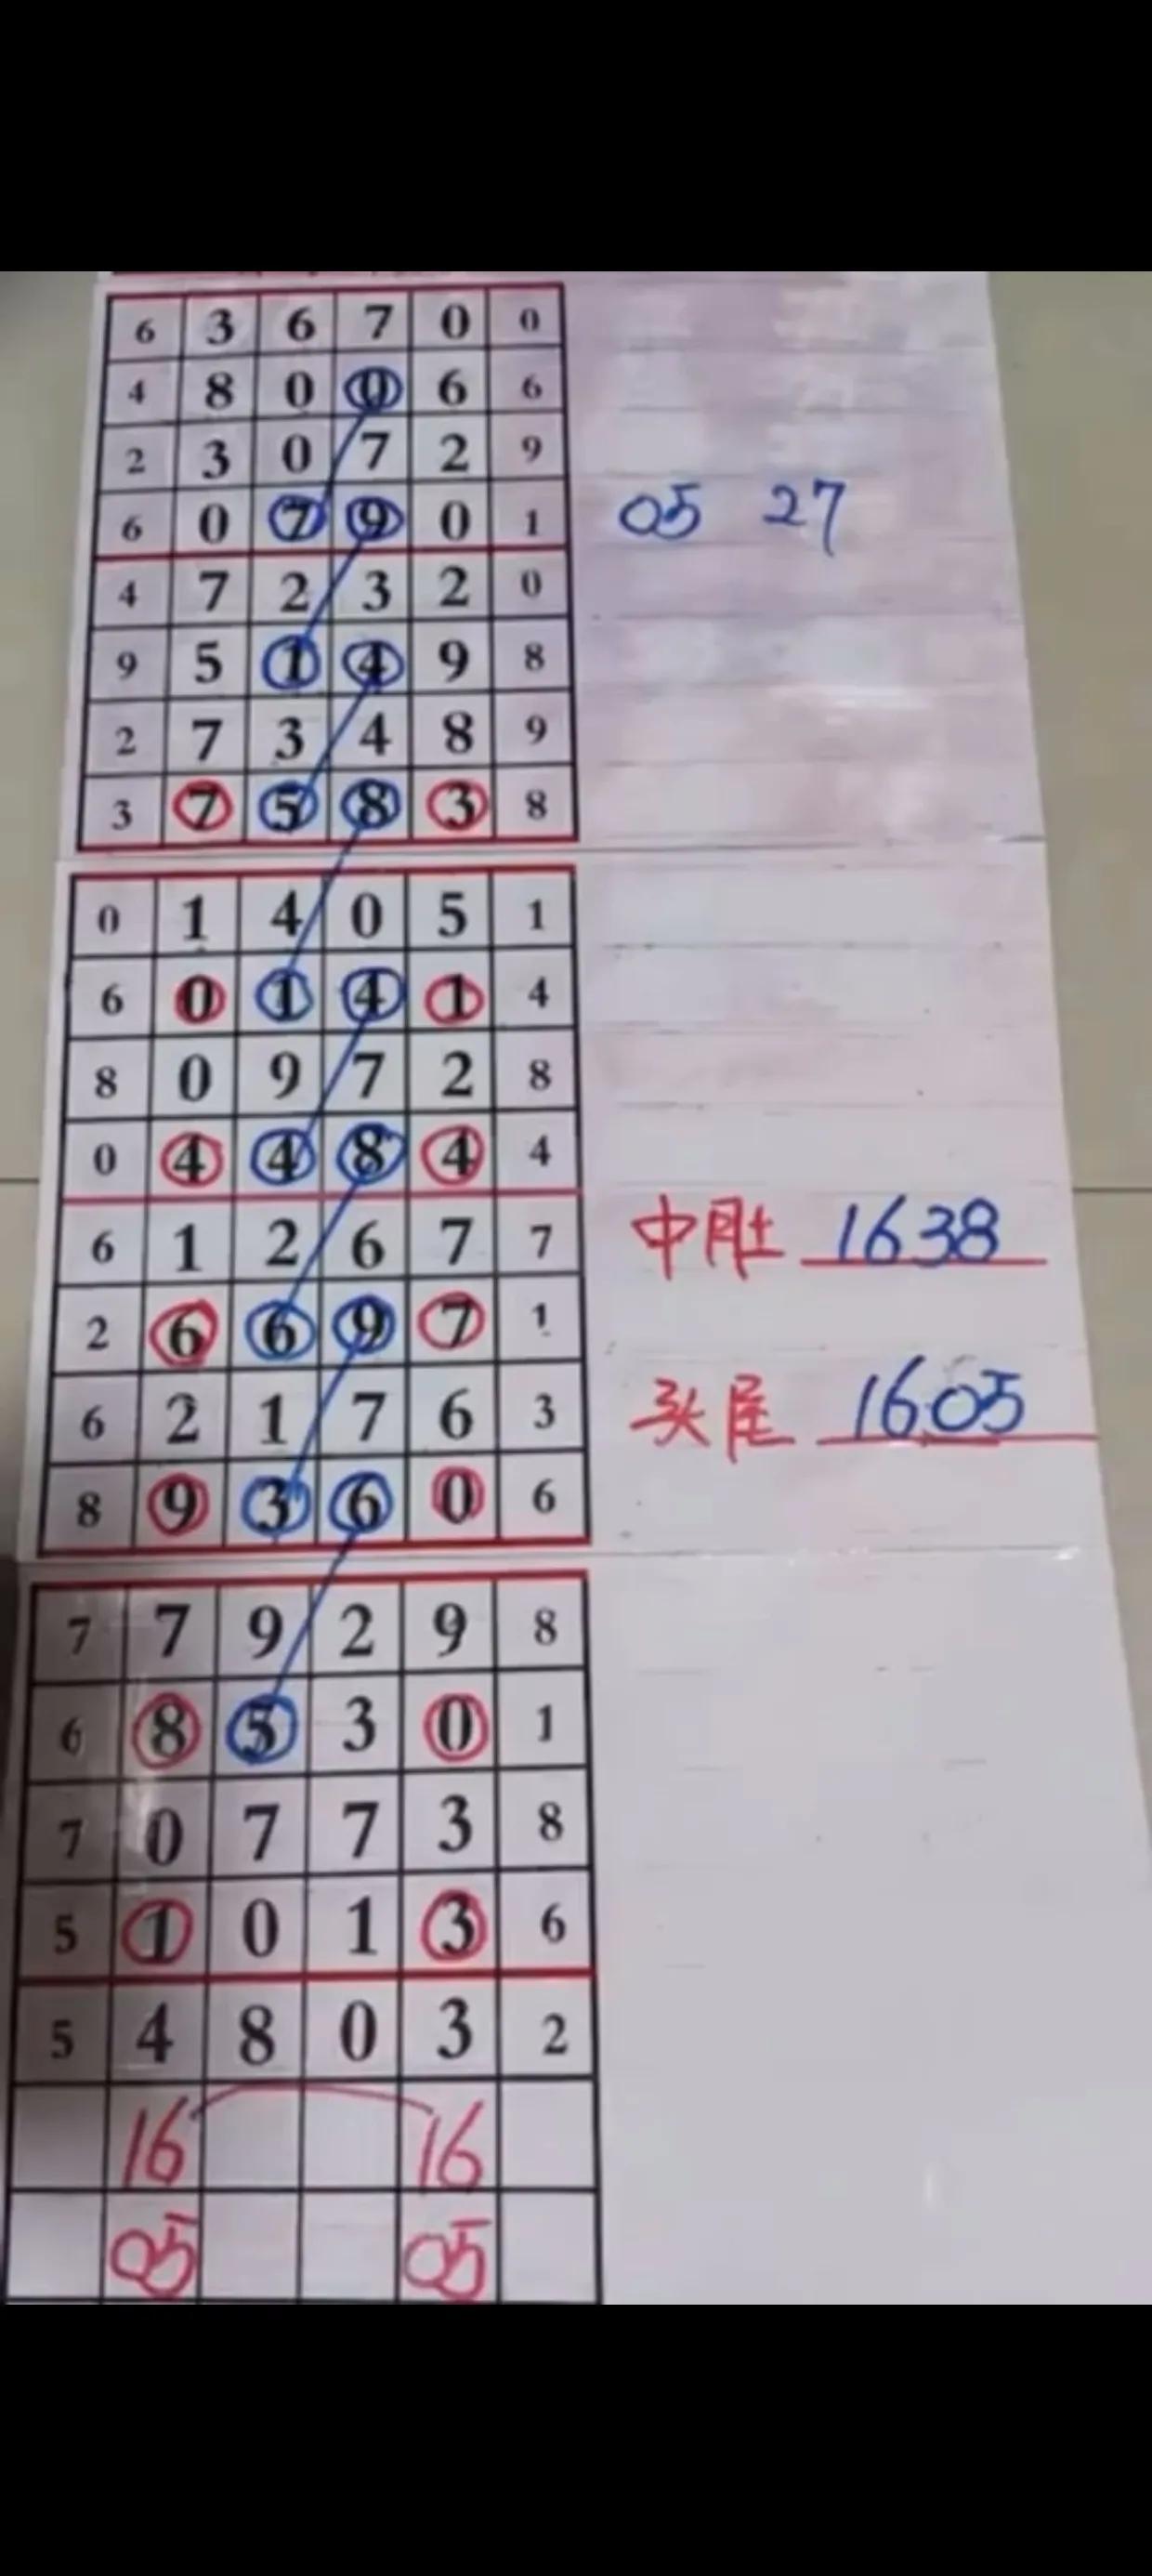 6 3 6 7 0 0
4 8 0 0 6 6
2 3 0 7 2 9
6 0 7 9 0 1 05 27
4 7 2 3 2 0
9 5 1 4 9 8
2 7 3 4 8 9
3 7 5 8 3 8
0 1 4 0 5 1
6 0 1 4 1 4
8 0 9 7 2 8
0 4 4 8 4 4
6 1 2 6 7 7 中肚 1638
2 6 6 9 7 1
6 2 1 7 6 3 头尾 1605
8 9 3 6 0 6
7 7 9 2 9 8
6 8 5 3 0 1
7 0 7 7 3 8
5 1 0 1 3 6
5 4 8 0 3 2
16 16
05 05